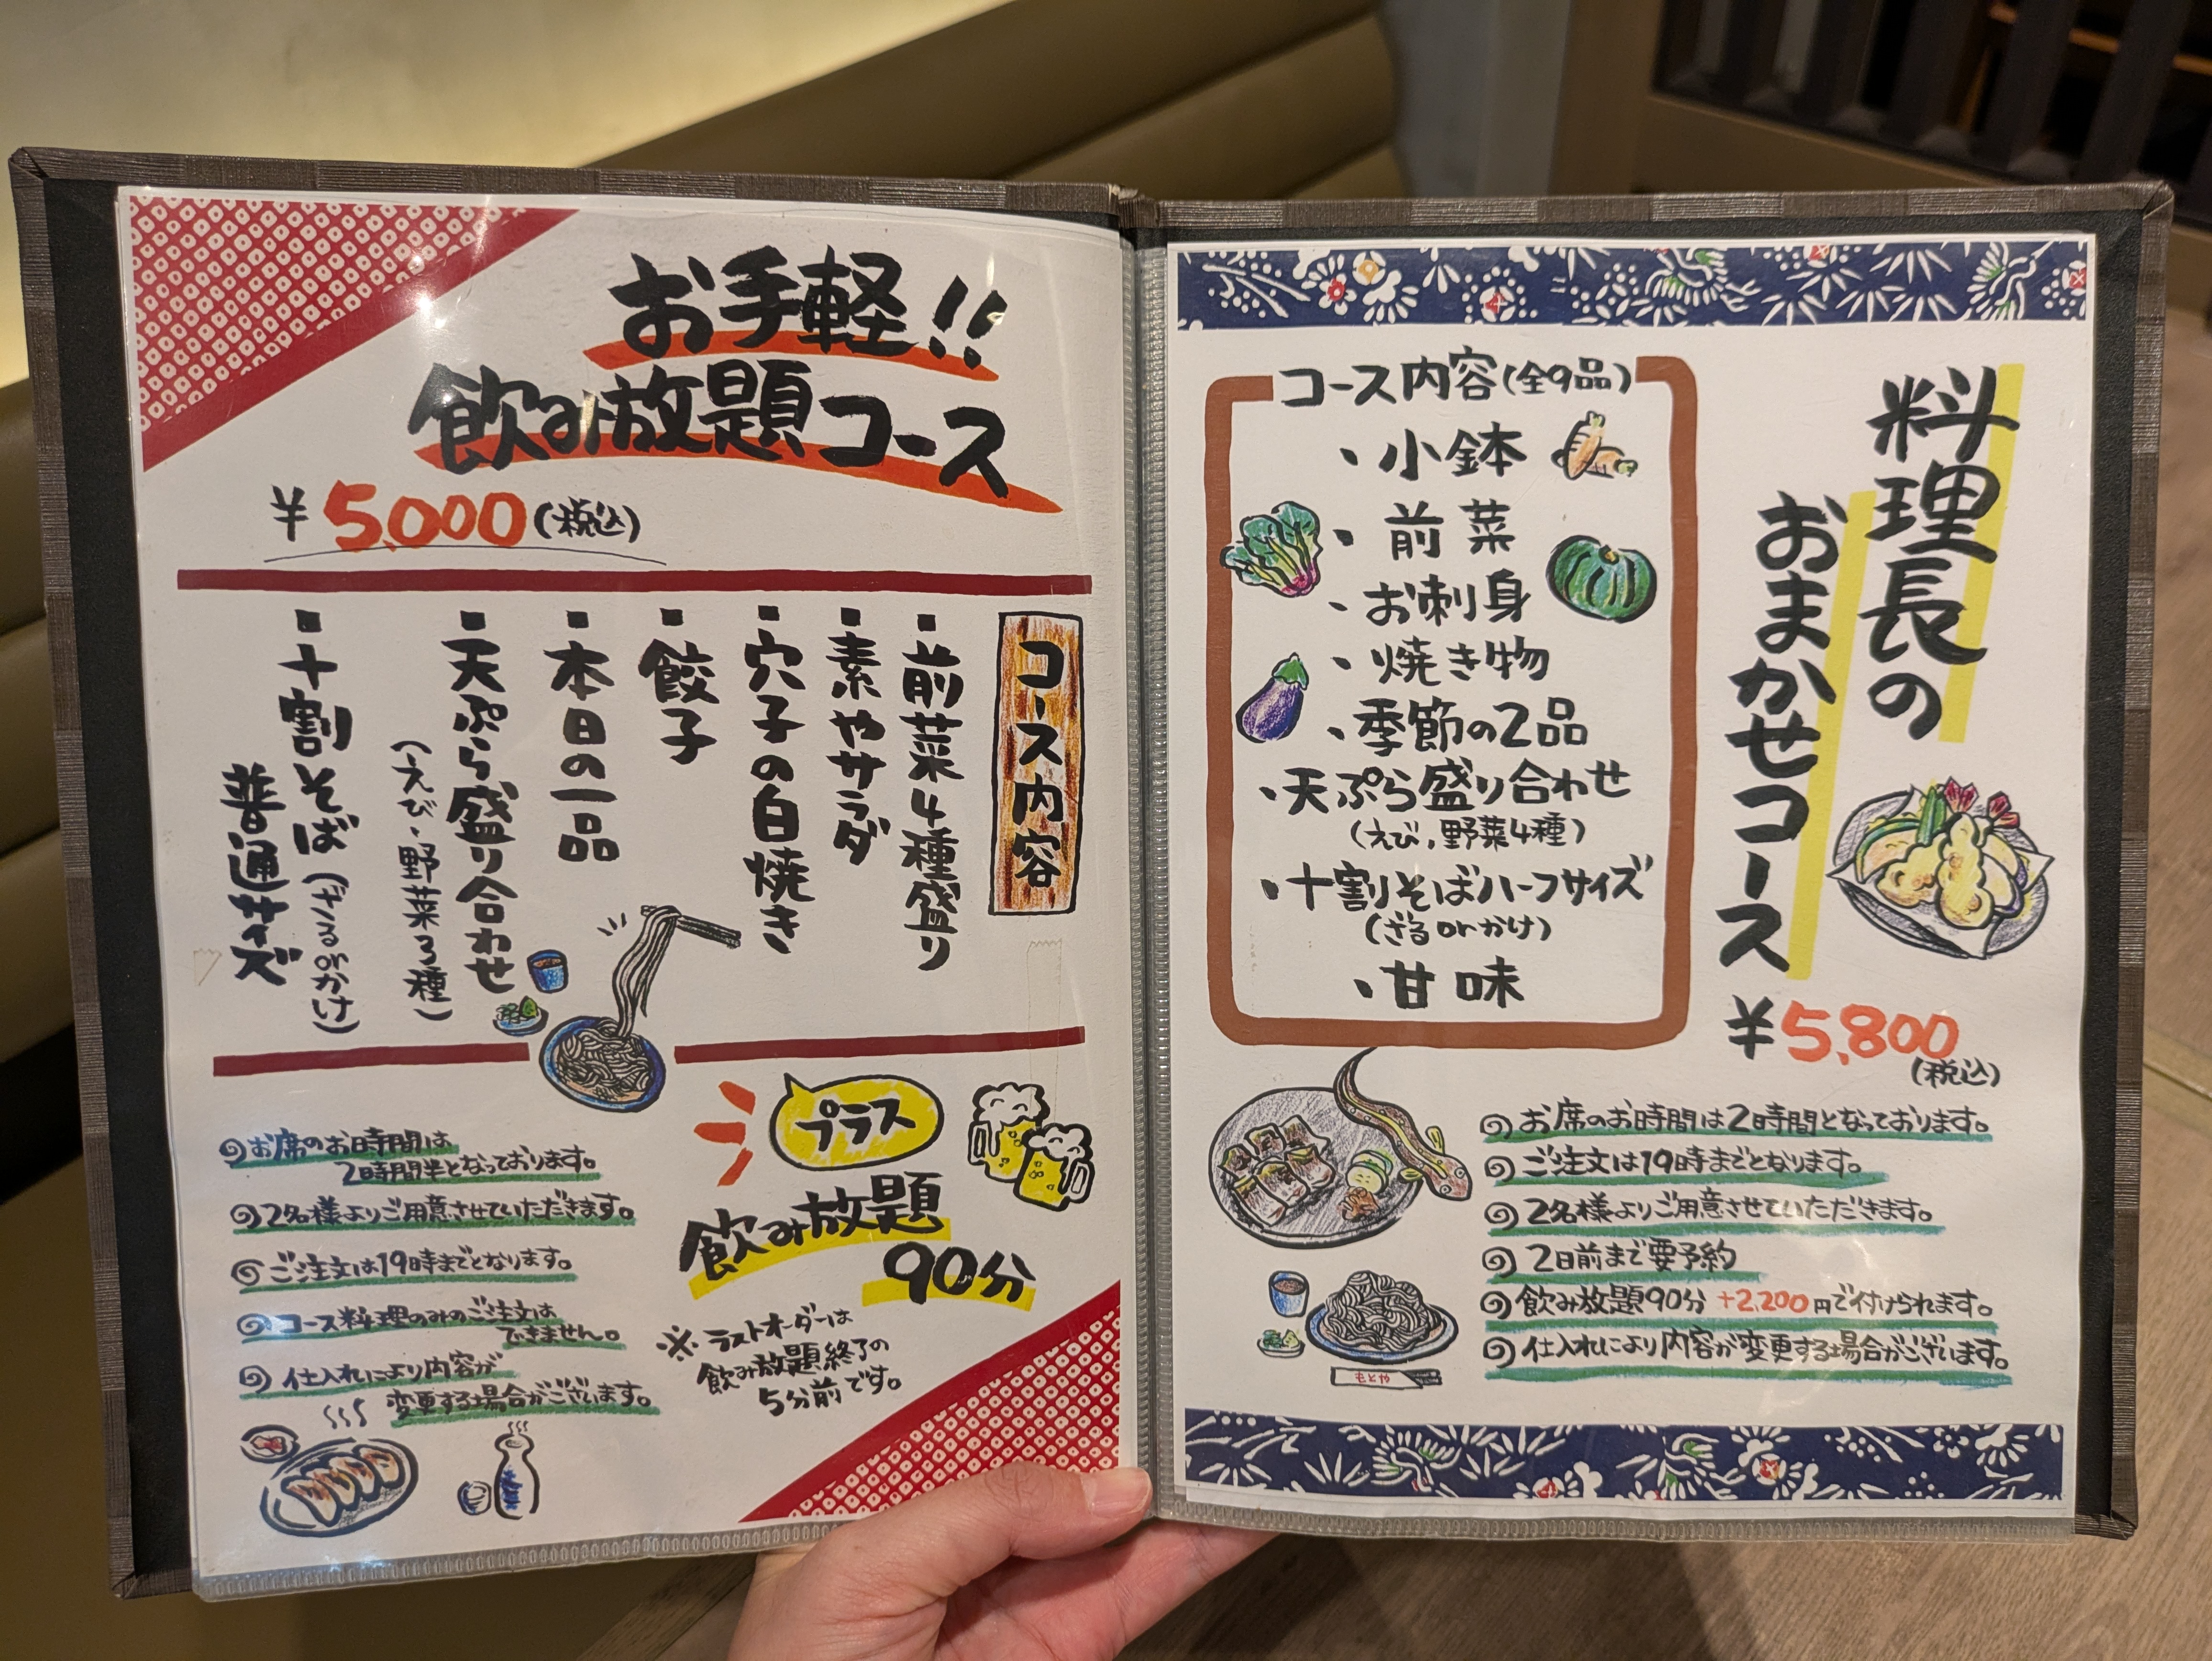 お手軽!!
飲み放題コース
¥5,000(税込)
コース内容
▪前菜4種盛り
▪素やサラダ
▪穴子の白焼き
▪餃子
▪本日の一品
▪天ぷら盛り合わせ
(えび・野菜3種)
▪十割そば(ざるorかけ)
普通サイズ
お席のお時間は
2時間半となっております。
2名様よりご用意させていただきます。
ご注文は19時までとなります。
コース料理のみのご注文は
できません。
仕入れにより内容が
変更する場合がございます。
プラス
飲み放題
90分
※ラストオーダーは
飲み放題終了の
5分前です。
料理長の
おまかせコース
¥5,800
(税込)
コース内容(全9品)
・小鉢
・前菜
・お刺身
・焼き物
・季節の2品
・天ぷら盛り合わせ
(えび,野菜4種)
・十割そばハーフサイズ
(ざるorかけ)
・甘味
お席のお時間は2時間となっております。
ご注文は19時までとなります。
2名様よりご用意させていただきます。
2日前まで要予約
飲み放題90分 +2,200円で付けられます。
仕入れにより内容が変更する場合がございます。
もとや